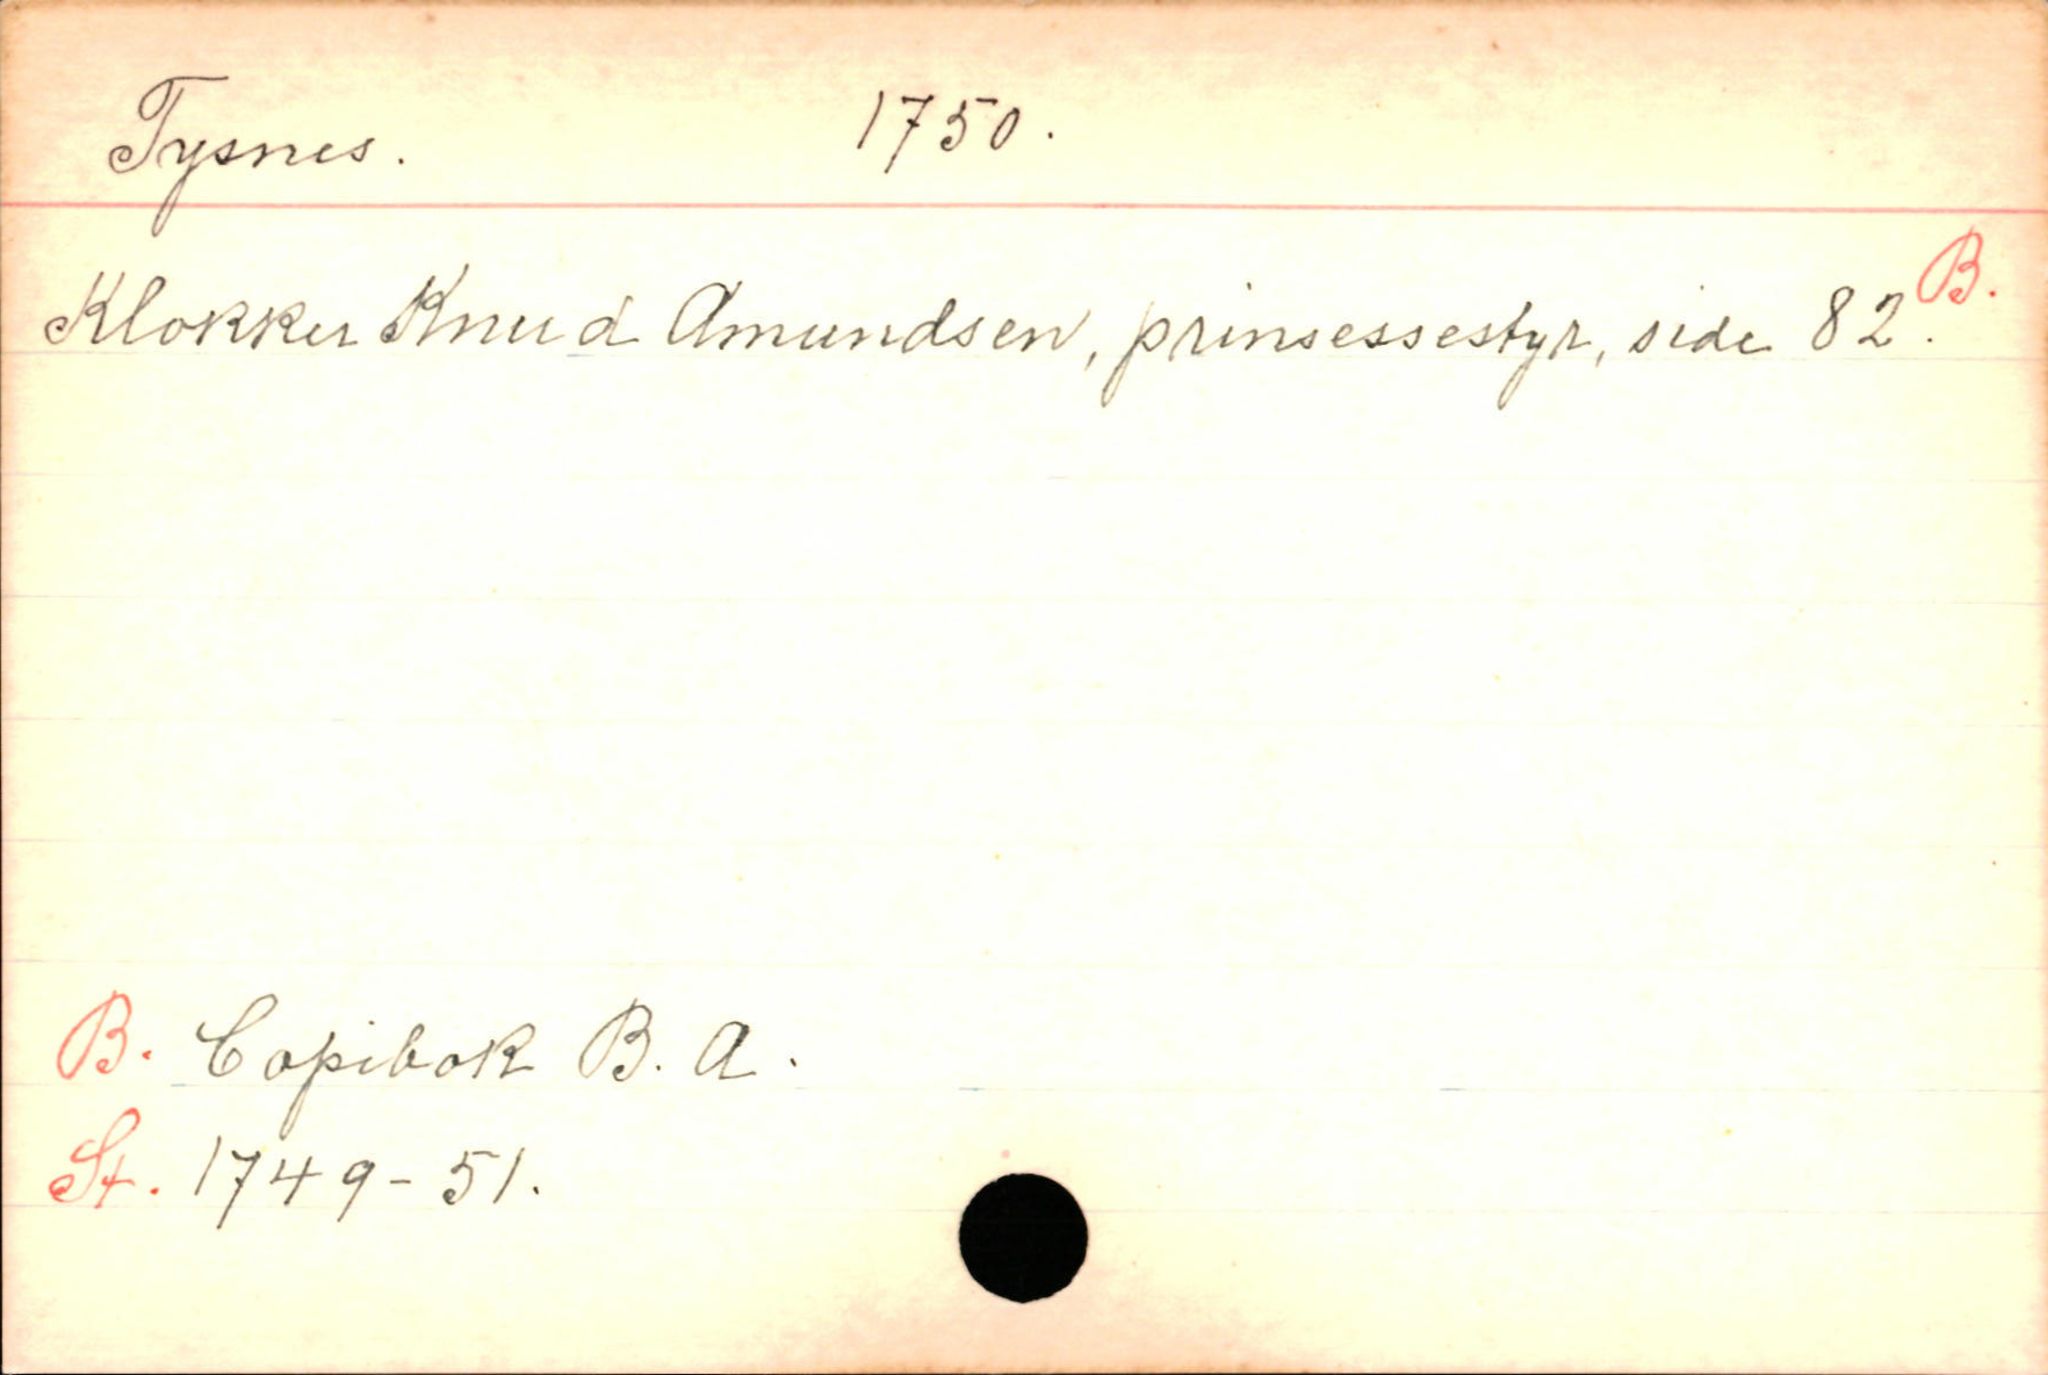 Tysnes. 1750.
Klokker Knud Amundsen, prinsessestyr, side 82. B.
B. Copibok B. A.
St. 1749-51.